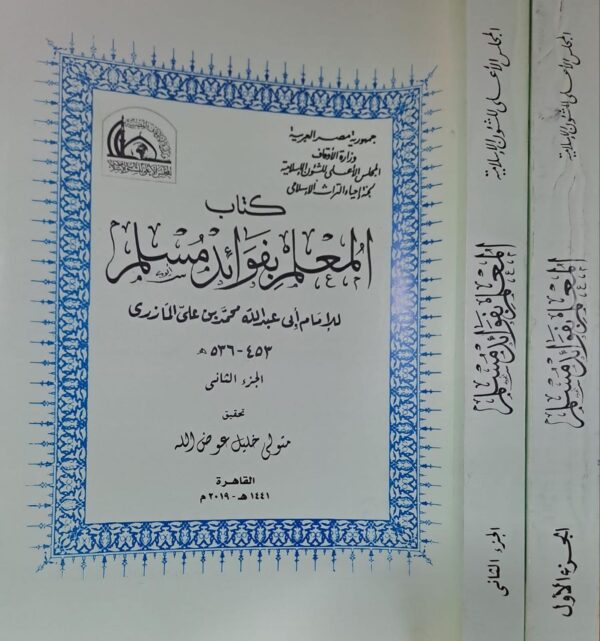 جمهورية مصر العربية
وزارة الأوقاف
المجلس الأعلى للشئون الإسلامية
لجنة إحياء التراث الإسلامى
كتاب
المعلم بفوائد مسلم
للإمام أبى عبد الله محمد بن على المازرى
٤٥٣ - ٥٣٦ هـ
الجزء الثانى
تحقيق
متولى خليل عوض الله
القاهرة
١٤٤١ هـ - ٢٠١٩ م
المجلس الأعلى للشئون الإسلامية
المعلم بفوائد مسلم
الجزء الثانى
المجلس الأعلى للشئون الإسلامية
المعلم بفوائد مسلم
الجزء الأول